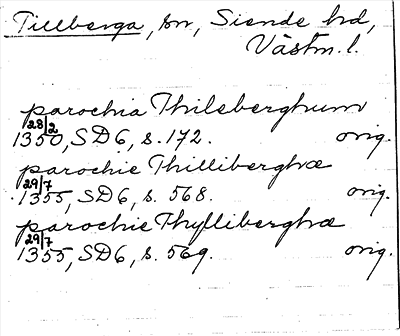 Tillberga, sn, Siende hd,
Västm. l.
parochia Thilsberghum
28/2
1350, SD6, s. 172. orig.
parochie Thilliberghæ
29/7
1355, SD6, s. 568. orig.
parochie Thylliberghæ
29/7
1355, SD6, s. 569. orig.